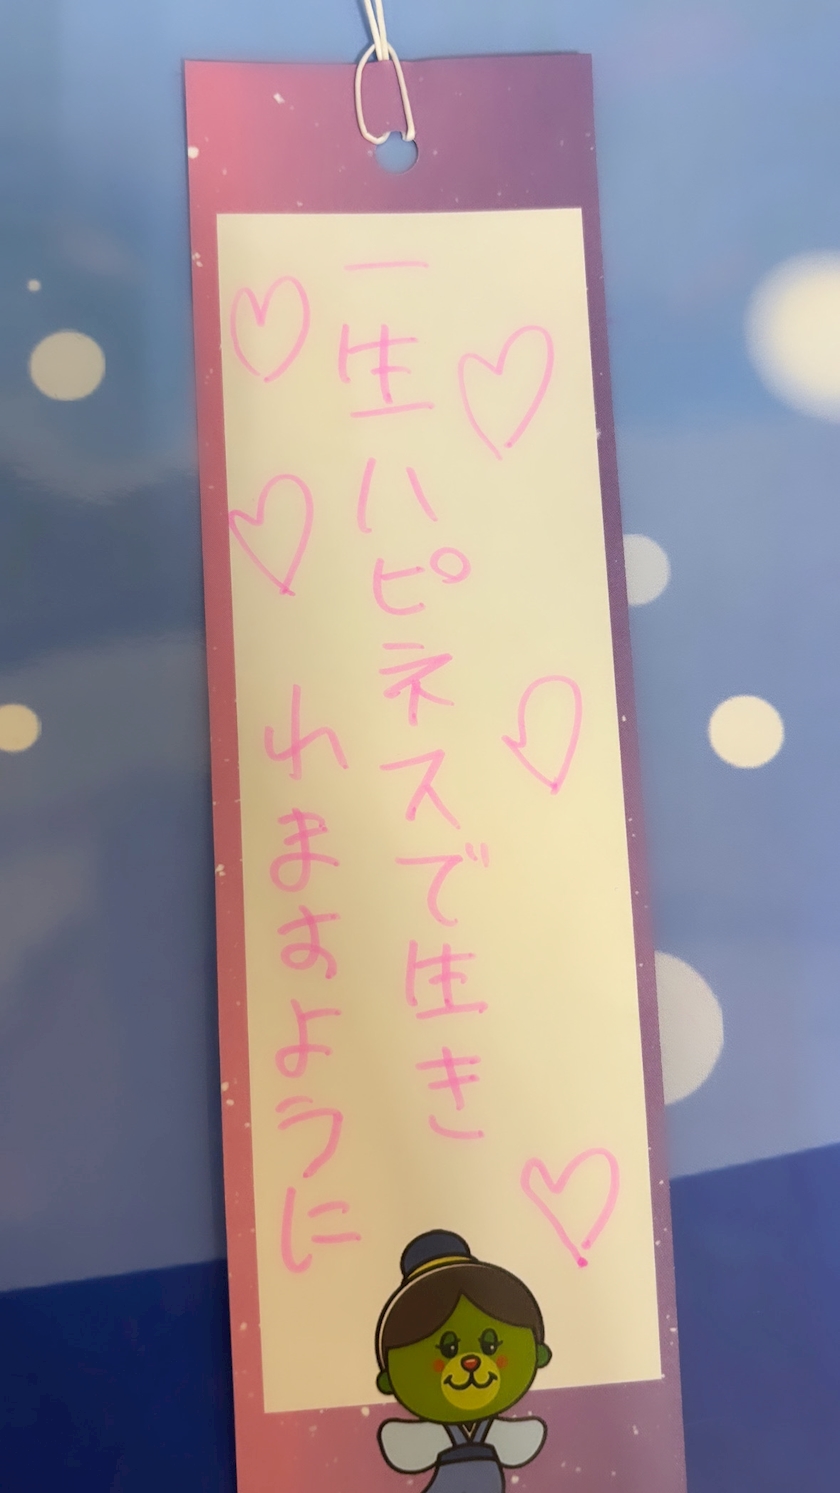 一生ハピネスで生き
れますように